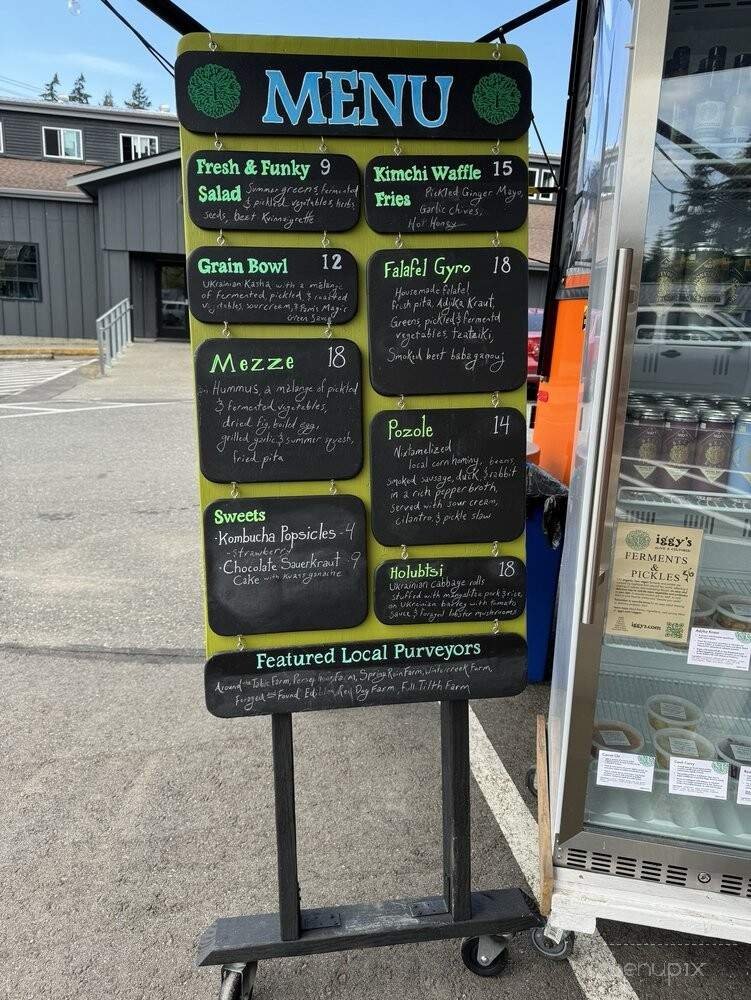 MENU
Fresh & Funky 9
Salad Summer greens, fermented
& pickled vegetables, herbs,
seeds, beet Kvinnaigrette
Kimchi Waffle 15
Fries Pickled Ginger Mayo,
Garlic Chives,
Hot Honey
Grain Bowl 12
Ukrainian Kasha with a mélange
of fermented, pickled & roasted
vegetables, sour cream, & Pam's Magic
Green Sauce
Falafel Gyro 18
House made falafel
Fresh pita, Adjika Kraut,
Greens, pickled & fermented
vegetables, tzatziki,
Smoked beet baba ganouj
Mezze 18
Hummus, a mélange of pickled
& fermented vegetables,
dried fig, boiled egg,
grilled garlic & summer squash,
fried pita
Pozole 14
Nixtamelized
local corn hominy, beans,
smoked sausage, duck & rabbit
in a rich pepper broth,
served with sour cream,
cilantro, & pickle slaw
Sweets
·Kombucha Popsicles - 4
- Strawberry
·Chocolate Sauerkraut - 9
Cake with Kvass ganache
Holubtsi 18
Ukrainian Cabbage rolls
stuffed with mangalitsa pork & rice,
on Ukrainian barley with tomato
sauce & foraged lobster mushrooms
Featured Local Purveyors
Around the Table Farm, Persephone Farm, Spring Rain Farm, Wintercreek Farm,
Foraged and Found Edibles, Red Dog Farm, Full Tilth Farm
iggy's
ALIVE & CULTURED
FERMENTS
&
PICKLES
iggys.com
Adjika Kraut
menupix